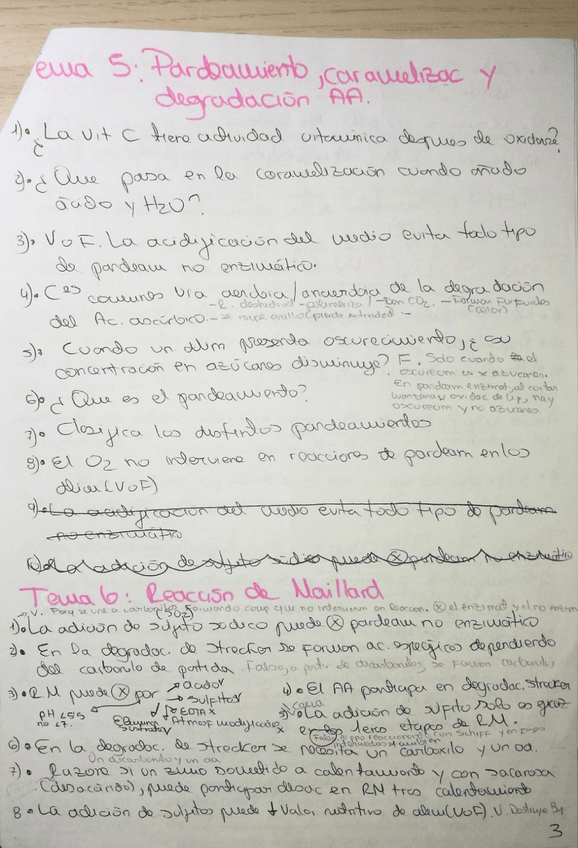 ema 5: Pardeamiento, caramelizac y
degradación AA.
1)• ¿La vit C tiene actividad vitamínica despues de oxidarse?
2)• ¿Que pasa en la caramelización cuando añado
ácido y H2O?
3)• V o F. La acidificación del medio evita todo tipo
de pardeam no enzimático.
4)• Ces comunes vía aerobia/anaerobia de la degradación
del Ac. ascórbico. - R. deshidrat - polimeriza / - Dan CO2. - Forman Furfurales
(color)
- se rompe anillo (pierde actividad) -
5)• Cuando un alim presenta oscurecimiento, ¿su
concentración en azúcares disminuye? F. Solo cuando el
oscurecim es x azucares.
en pardeam enzimat, al
oxidac de lip, hay
oscurecim y no azucares
6)• ¿Que es el pardeamiento?
7)• Clasifica los distintos pardeamientos
8)• El O2 no interviene en reacciones de pardeam en los
alim (V o F)
9)• La acidificacion del medio evita todo tipo de pardeam
no enzimático
10)• La adición de sulfito sódico puede ⓧ pardeam no enzimático
Tema 6: Reacción de Maillard
V. Porq se une a carbonilos formando comp que no intervienen en Reaccion. ⓧ el enzimat y el no enzim
(SO2)
1)• La adición de sulfito sódico puede ⓧ pardeam no enzimático
2)• En la degradac. de strecker se forman ac. específicos dependiendo
del carbonilo de partida. Falso, a partir de dicarbonilos, se forman carbonilos
3)• R.M puede ⓧ por → acidor
→ sulfitos
→ EDTA
Atmosf modificadas
PH
Elimina
sustrato
4)• El AA participa en degradac. strecker
5)• La adición de sulfito solo es eficaz
en las 1eras etapas de RM.
Falso
6)• En la degradac. de strecker se necesita un carboxilo y un aa.
Un dicarbonilo y un aa
7)• Razona si un zumo sometido a calentamiento y con sacarosa
(disacárido), puede participar disac en RM tras calentamiento
8 • La adición de sulfitos puede ↓ Valor nutritivo de alim (V o F). V. Destruye B1
3